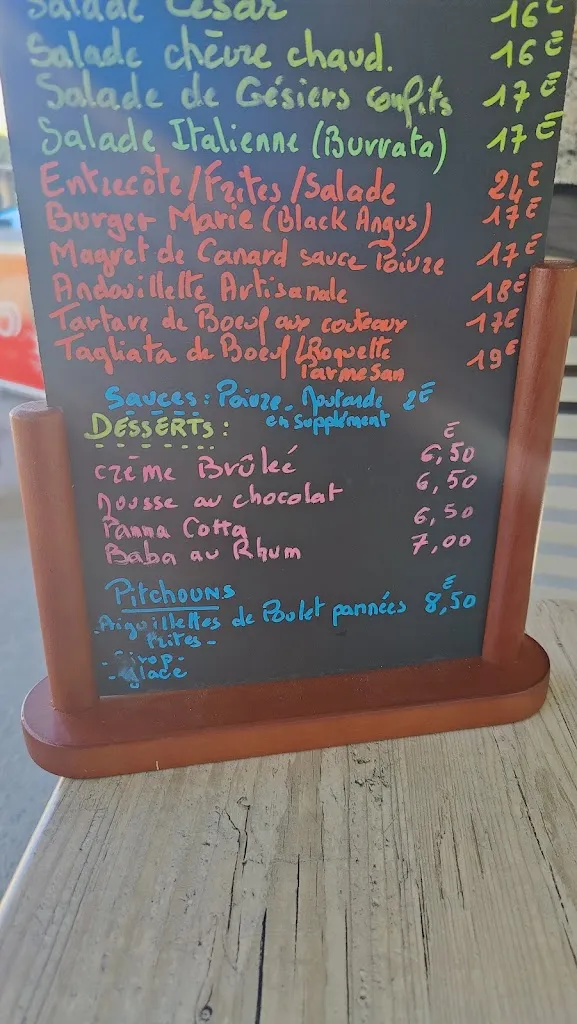 Salade César 16€
Salade chèvre chaud. 16€
Salade de Gésiers confits 17€
Salade Italienne (Burrata) 17€
Entrecôte/Frites/Salade 24€
Burger Marie (Black Angus) 17€
Magret de Canard sauce Poivre 17€
Andouillette Artisanale 18€
Tartare de Boeuf aux couteaux 17€
Tagliata de Boeuf/Roquette 19€
Parmesan
Sauces: Poivre - Moutarde 2€
en supplément
DESSERTS: €
Crème Brûleé 6,50
Mousse au chocolat 6,50
Panna Cotta 6,50
Baba au Rhum 7,00
PITCHOUNS €
-Aiguillettes de Poulet pannées 8,50
Frites -
- Sirop -
- glace